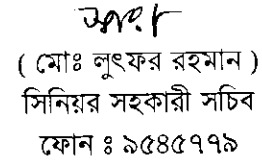 ( মোঃ লুৎফর রহমান )
সিনিয়র সহকারী সচিব
ফোন ঃ ৯৫৪৫৭৭৯